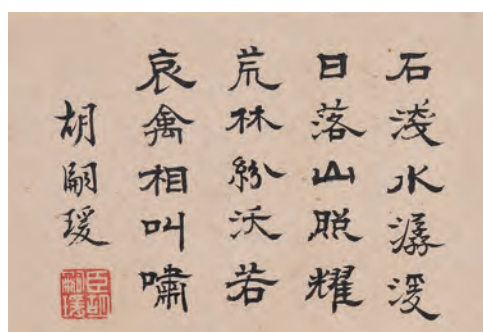 石淺水潺湲
日落山照耀
荒林紛沃若
哀禽相叫嘯
胡嗣瑗
臣胡嗣瑗